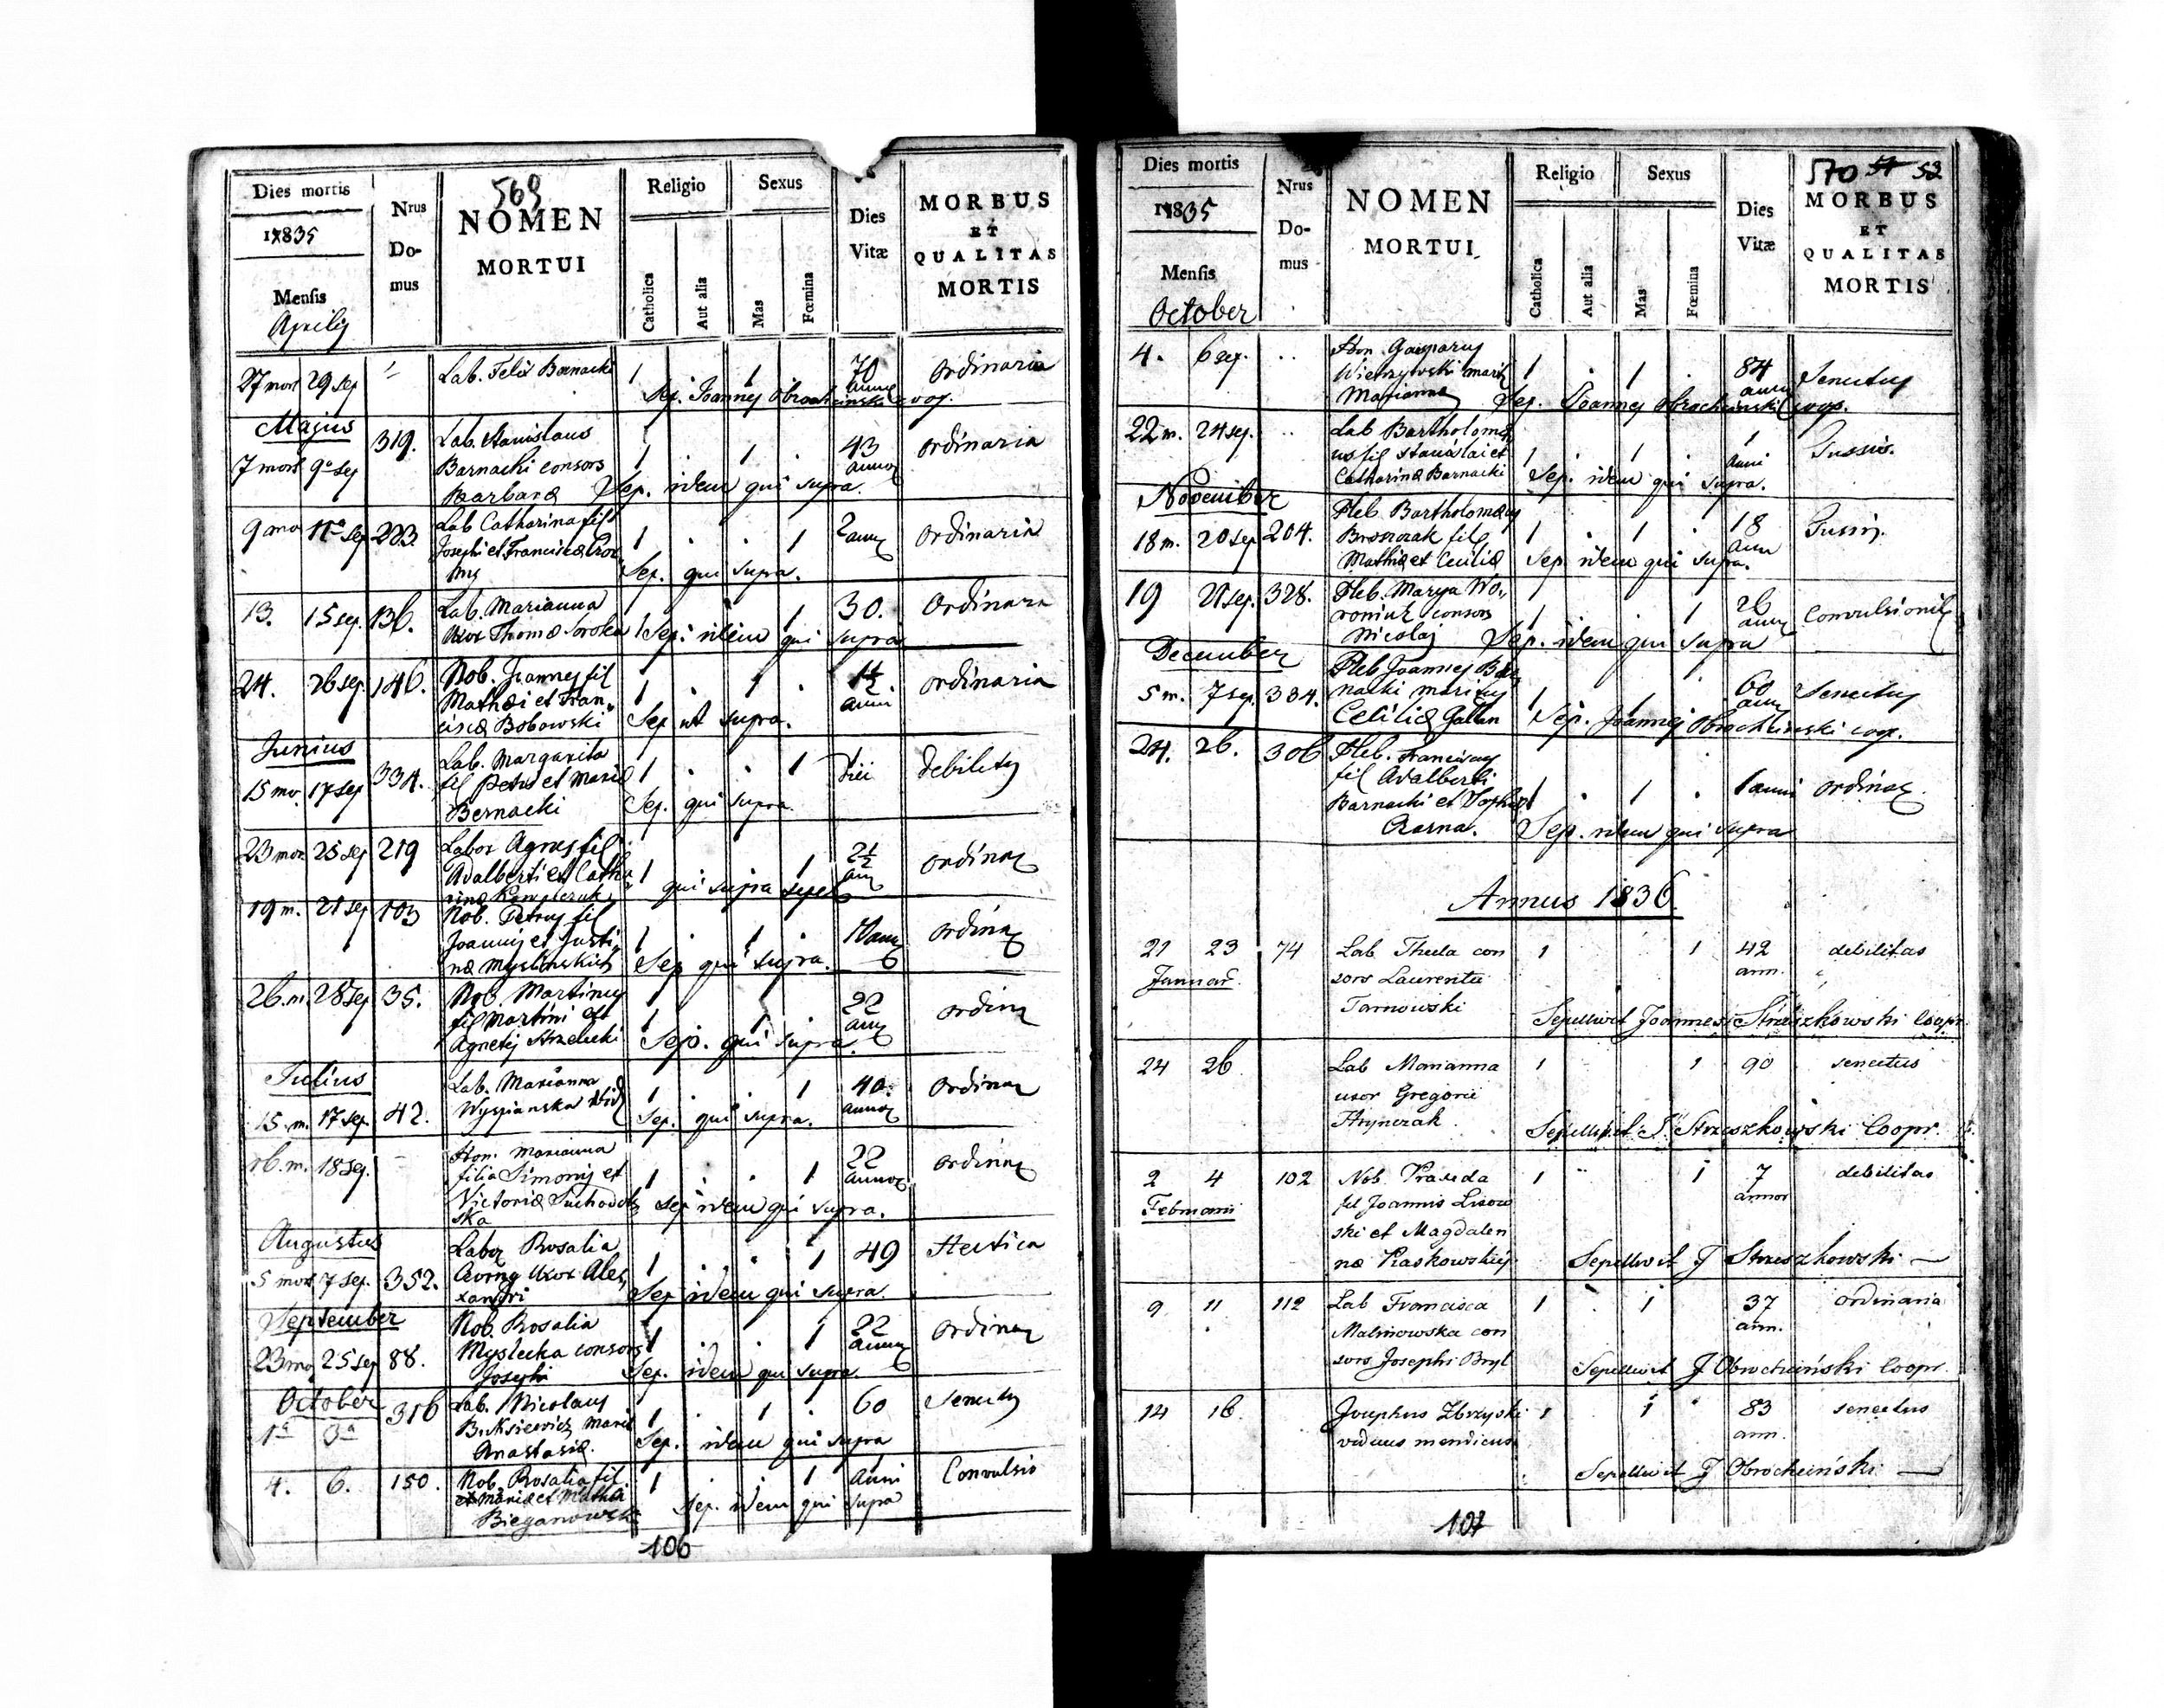 569
Dies mortis
1835
Mensis
Aprilis
Nrus
Do-
mus
NOMEN
MORTUI
Religio
Catholica
Aut alia
Sexus
Mas
Fœmina
Dies
Vitæ
MORBUS
ET
QUALITAS
MORTIS
27 mort 29 sep Lab. Felix Barnacki 1 . 1 . 70 ordinaria
annos
Sep. Joannes Obrocheinski coop.
Majus
7 mort 9a sep 319. Lab. Stanislaus 1 . 1 . 43 ordinaria
Barnacki consors annos
Barbaræ Sep. idem qui supra.
9 mo 11a sep 283. Lab Catharina fil 1 . . 1 2 ann ordinaria
Josephi et Franciscæ
Sep. qui supra.
13. 15 sep. 136. Lab. Marianna 1 30. Ordinara
Uxor Thomæ Soroka 1 Sep. idem qui supra
24. 26 sep 146. Nob. Joannes fil 1 . 1 . 1½ ordinaria
Mathæi et Fran- anni
ciscæ Bobowski Sep ut supra.
Junius
15 mo. 17 sep 334. Lab. Margarita 1 . . 1 debilitas
fil Petri et Mariæ
Bernacki Sep. qui supra.
23 mor 25 sep 219 Labor Agnes fil 1 1 2½ ordinar
Adalberti et Catha ann
rinæ qui supra sepel
19 m. 21 sep 103 Nob. Petrus fil 1 . 1 . 10 ann ordinar
Joannis et Justi-
næ Myslinskich Sep qui supra.
26. m. 28 sep 35. Nob. Martinus 1 . 1 . 22 ordinar
fil Martini et ann
Agnetis Strzelecki Sep. qui supra.
Julius
15. m. 17 sep 42. Lab. Marianna 1 . . 1 40. Ordinar
Wyspianska Vid annos
Sep. qui supra.
16. m. 18 sep. Hon. Marianna 1 . . 1 22 ordinar
filia Simonis et annor
Victoriæ Suchodol
ska sep idem qui supra.
Augustus
5 mort 7 sep. 352. Labor Rosalia 1 . . 1 49 Hectica
Uxor Alex
xandri Sep idem qui supra.
September
23 mo 25 sep 88. Nob. Rosalia 1 . . 1 22 ordinar
Myslecka consors annor
Josephi Sep. idem qui supra.
October
1a 3a 316 Lab. Nicolaus 1 . 1 . 60 Senectus
Anastasiæ. Sep. idem qui supra
4. 6. 150. Nob. Rosalia fil 1 . . 1 anni Convulsio
et Mariæ et Mathæi
Bieganowski Sep. idem qui supra
106
570 51 52
Dies mortis
1835
Mensis
October
Nrus
Do-
mus
NOMEN
MORTUI
Religio
Catholica
Aut alia
Sexus
Mas
Fœmina
Dies
Vitæ
MORBUS
ET
QUALITAS
MORTIS
4. 6 sep. .. Hon. Gasparus 1 . 1 . 84 Senectus
Wierzynski marit annos
Mariannæ Sep. Joannes Obrocheinski coop.
22 m. 24 sep. .. Lab Bartholomæ 1 . 1 . 1 Tussis.
us fil Stanislai et anni
Catharinæ Barnacki Sep. idem qui supra.
November
18 m. 20 sep 204. Pleb. Bartholomæus 1 . 1 . 18 Tussis.
fil ann
Mathiæ et Ceciliæ Sep idem qui supra.
19 21 sep. 328. Pleb. Marya Wo- 1 . . 1 26 Convulsionis
roniuk consors ann
Nicolaj Sep. idem qui supra
December
5 m. 7 sep. 334. Pleb Joannes Bar 1 . 1 . 60 Senectus
nacki maritus ann
Celiliæ Gallan Sep. Joannes Obrocheinski coop.
24. 26. 306 Pleb. Franciscus 1 . 1 . 1 anni ordinar.
fil Adalberti
Barnacki et Sophiæ
Czarna. Sep. idem qui supra
Annus 1836.
21 23 74 Lab Thecla con 1 1 42 debilitas
Januar. sors Laurentii ann.
Tarnowski Sepellivit Joannes Straszkowski Coopr.
24 26 Lab Marianna 1 1 90 senectus
uxor Gregorii
Hrynczak. Sepellivit J Straszkowski Coopr.
2 4 102 Nob. Praxeda 1 1 7 debilitas
Februarii fil Joannis Lisow annor
ski et Magdalen
næ Raskowskiej Sepellivit J Straszkowski
9 11 112 Lab Francisca 1 1 37 ordinaria
Malinowska con ann.
sors Josephi Bryl Sepellivit J Obrocheiński Coopr.
14 16. Josephus Zbrzyski 1 1 83 senectus
viduus mendicus ann.
Sepellivit J Obrocheiński
107